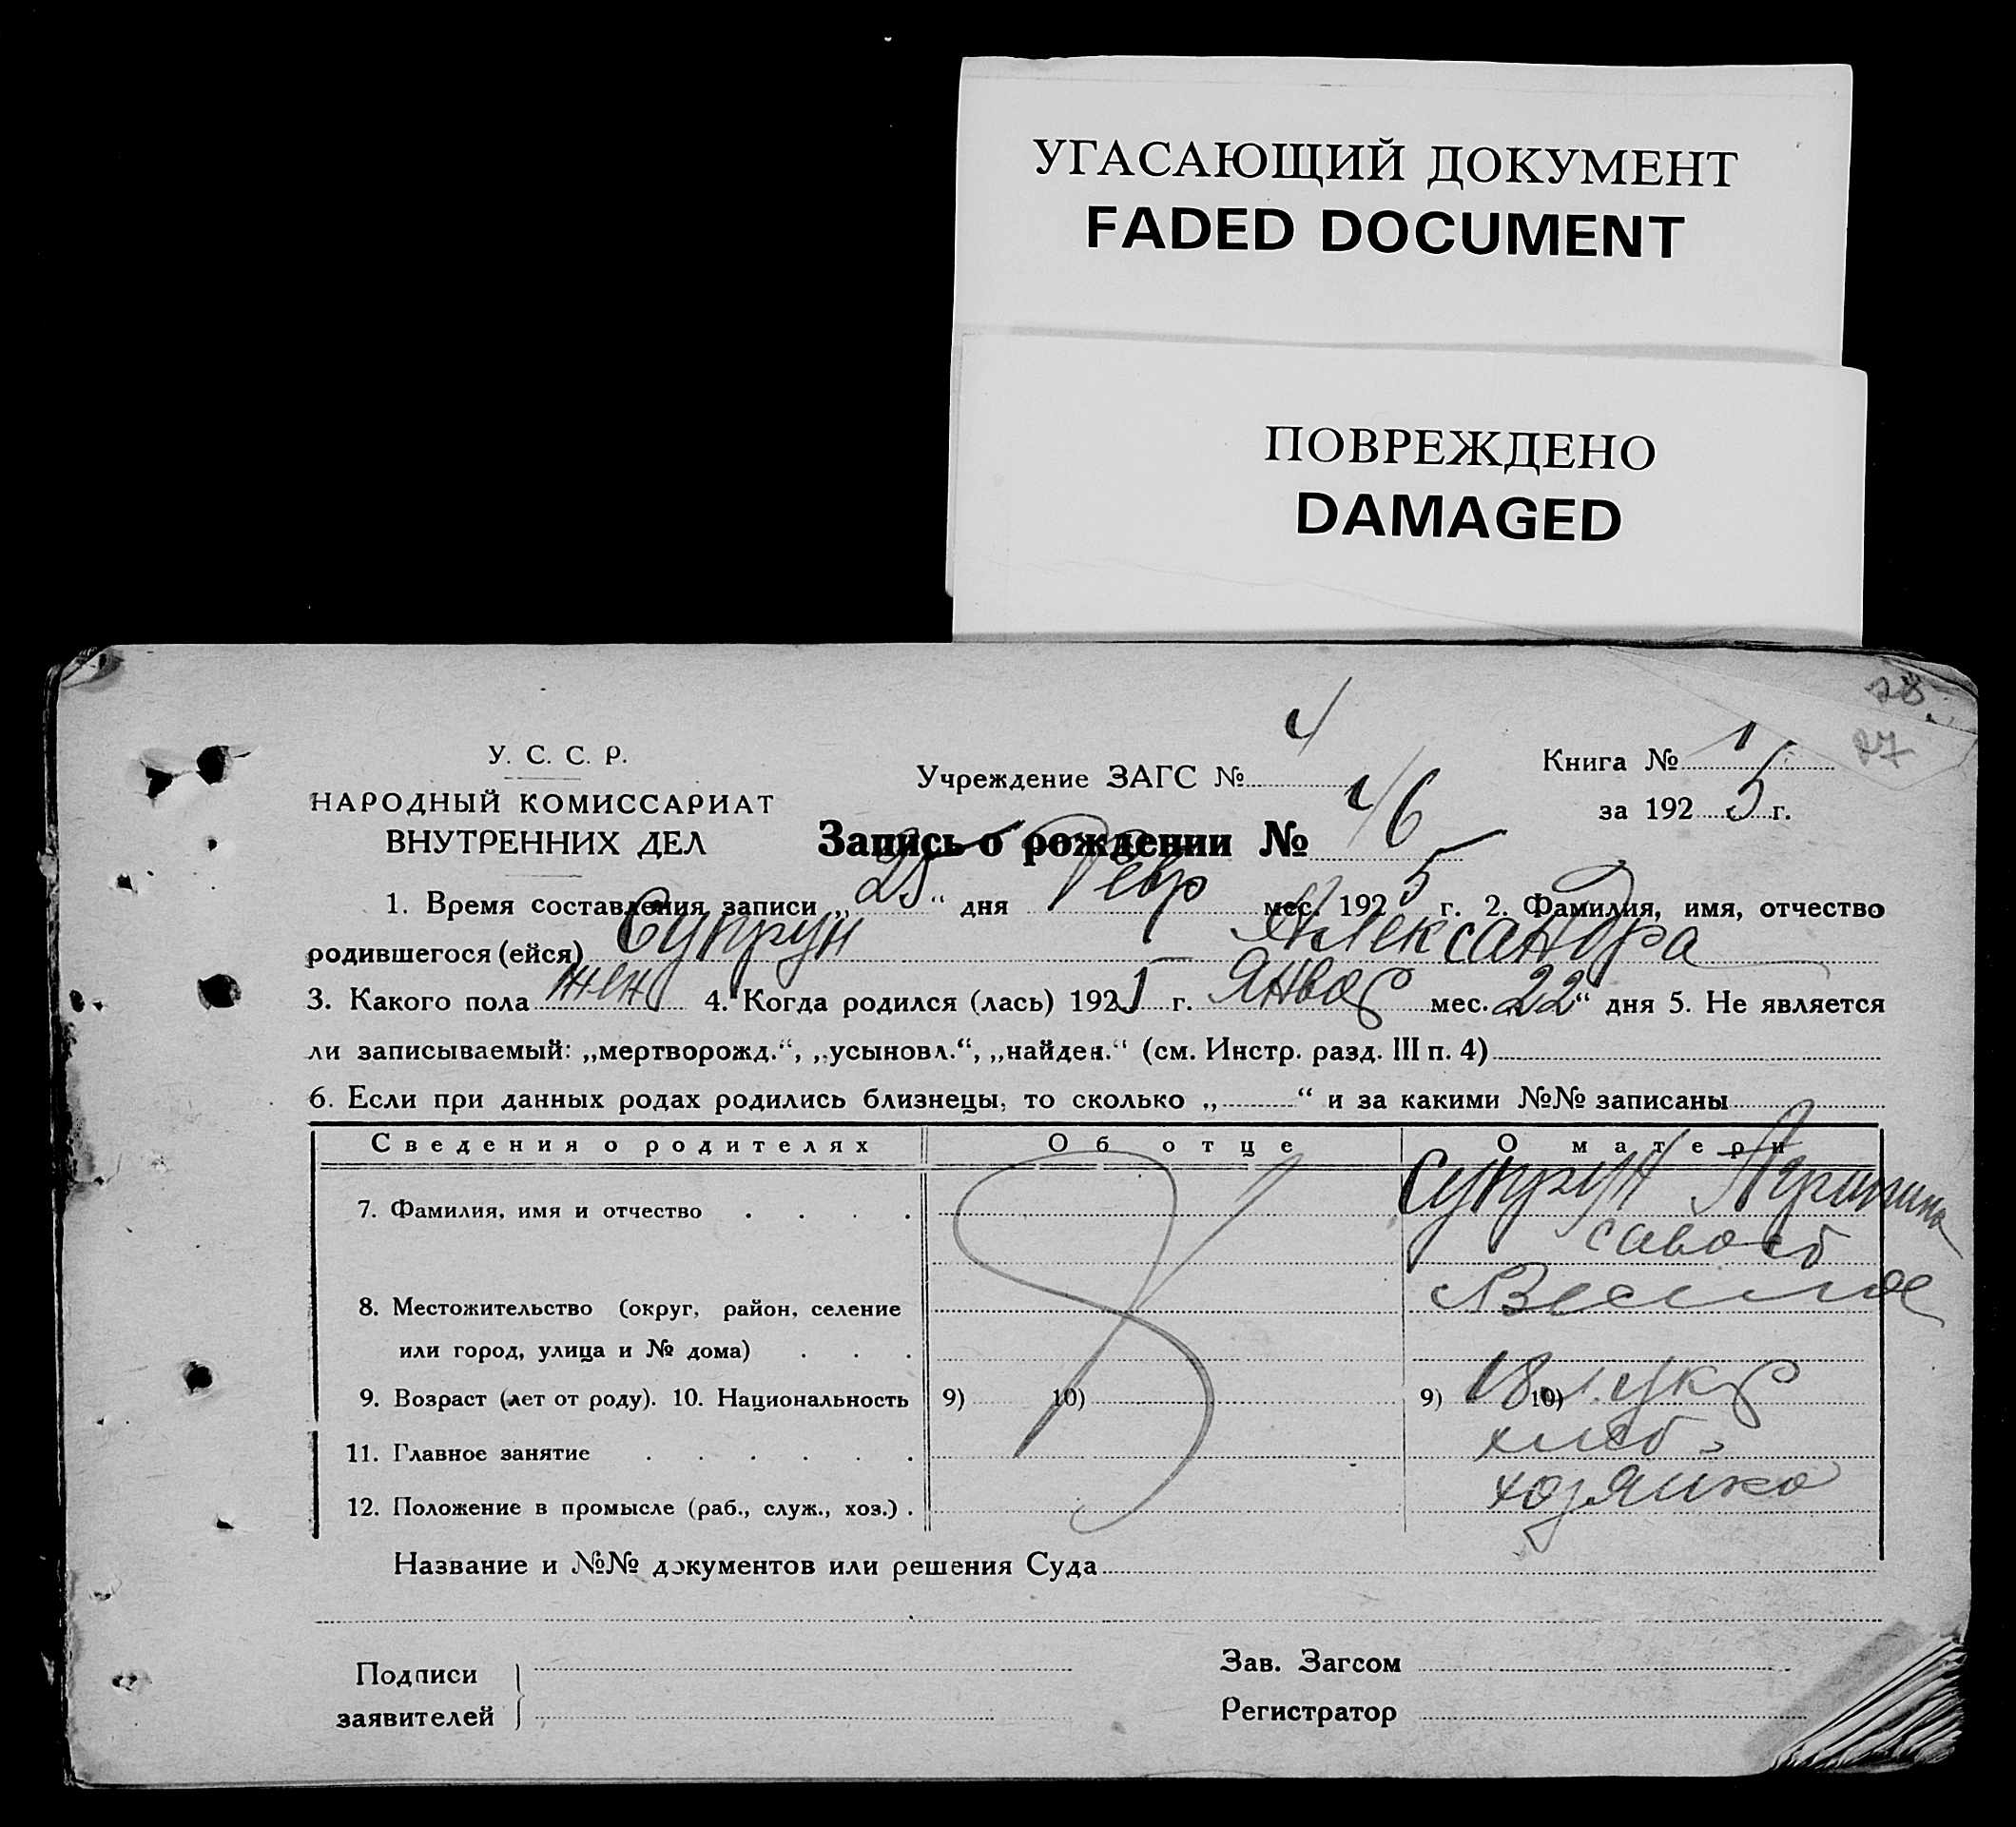 УГАСАЮЩИЙ ДОКУМЕНТ
FADED DOCUMENT
ПОВРЕЖДЕНО
DAMAGED
28
27
У. С. С. Р.
НАРОДНЫЙ КОМИССАРИАТ
ВНУТРЕННИХ ДЕЛ
Учреждение ЗАГС № 4
Книга № 1
за 192 5 г.
Запись о рождении № 46
1. Время составления записи „ 25 “ дня Февр мес. 192 5 г. 2. Фамилия, имя, отчество
родившегося (ейся) Супрун Александра
3. Какого пола жен 4. Когда родился (лась) 192 5 г. Январ мес. 22 “ дня 5. Не является
ли записываемый: „мертворожд.“, „усыновл.“, „найден.“ (см. Инстр. разд. III п. 4)
6. Если при данных родах родились близнецы, то сколько „ “ и за какими №№ записаны
Сведения о родителях Об отце О матери
7. Фамилия, имя и отчество . . . . Супрун
8. Местожительство (округ, район, селение
или город, улица и № дома) . . .
9. Возраст (лет от роду). 10. Национальность 9) 10) 9) 18 л. 10) укр
11. Главное занятие . . . . . . хлеб
12. Положение в промысле (раб., служ., хоз.) . хозяйка
Название и №№ документов или решения Суда
Подписи
заявителей
Зав. Загсом
Регистратор